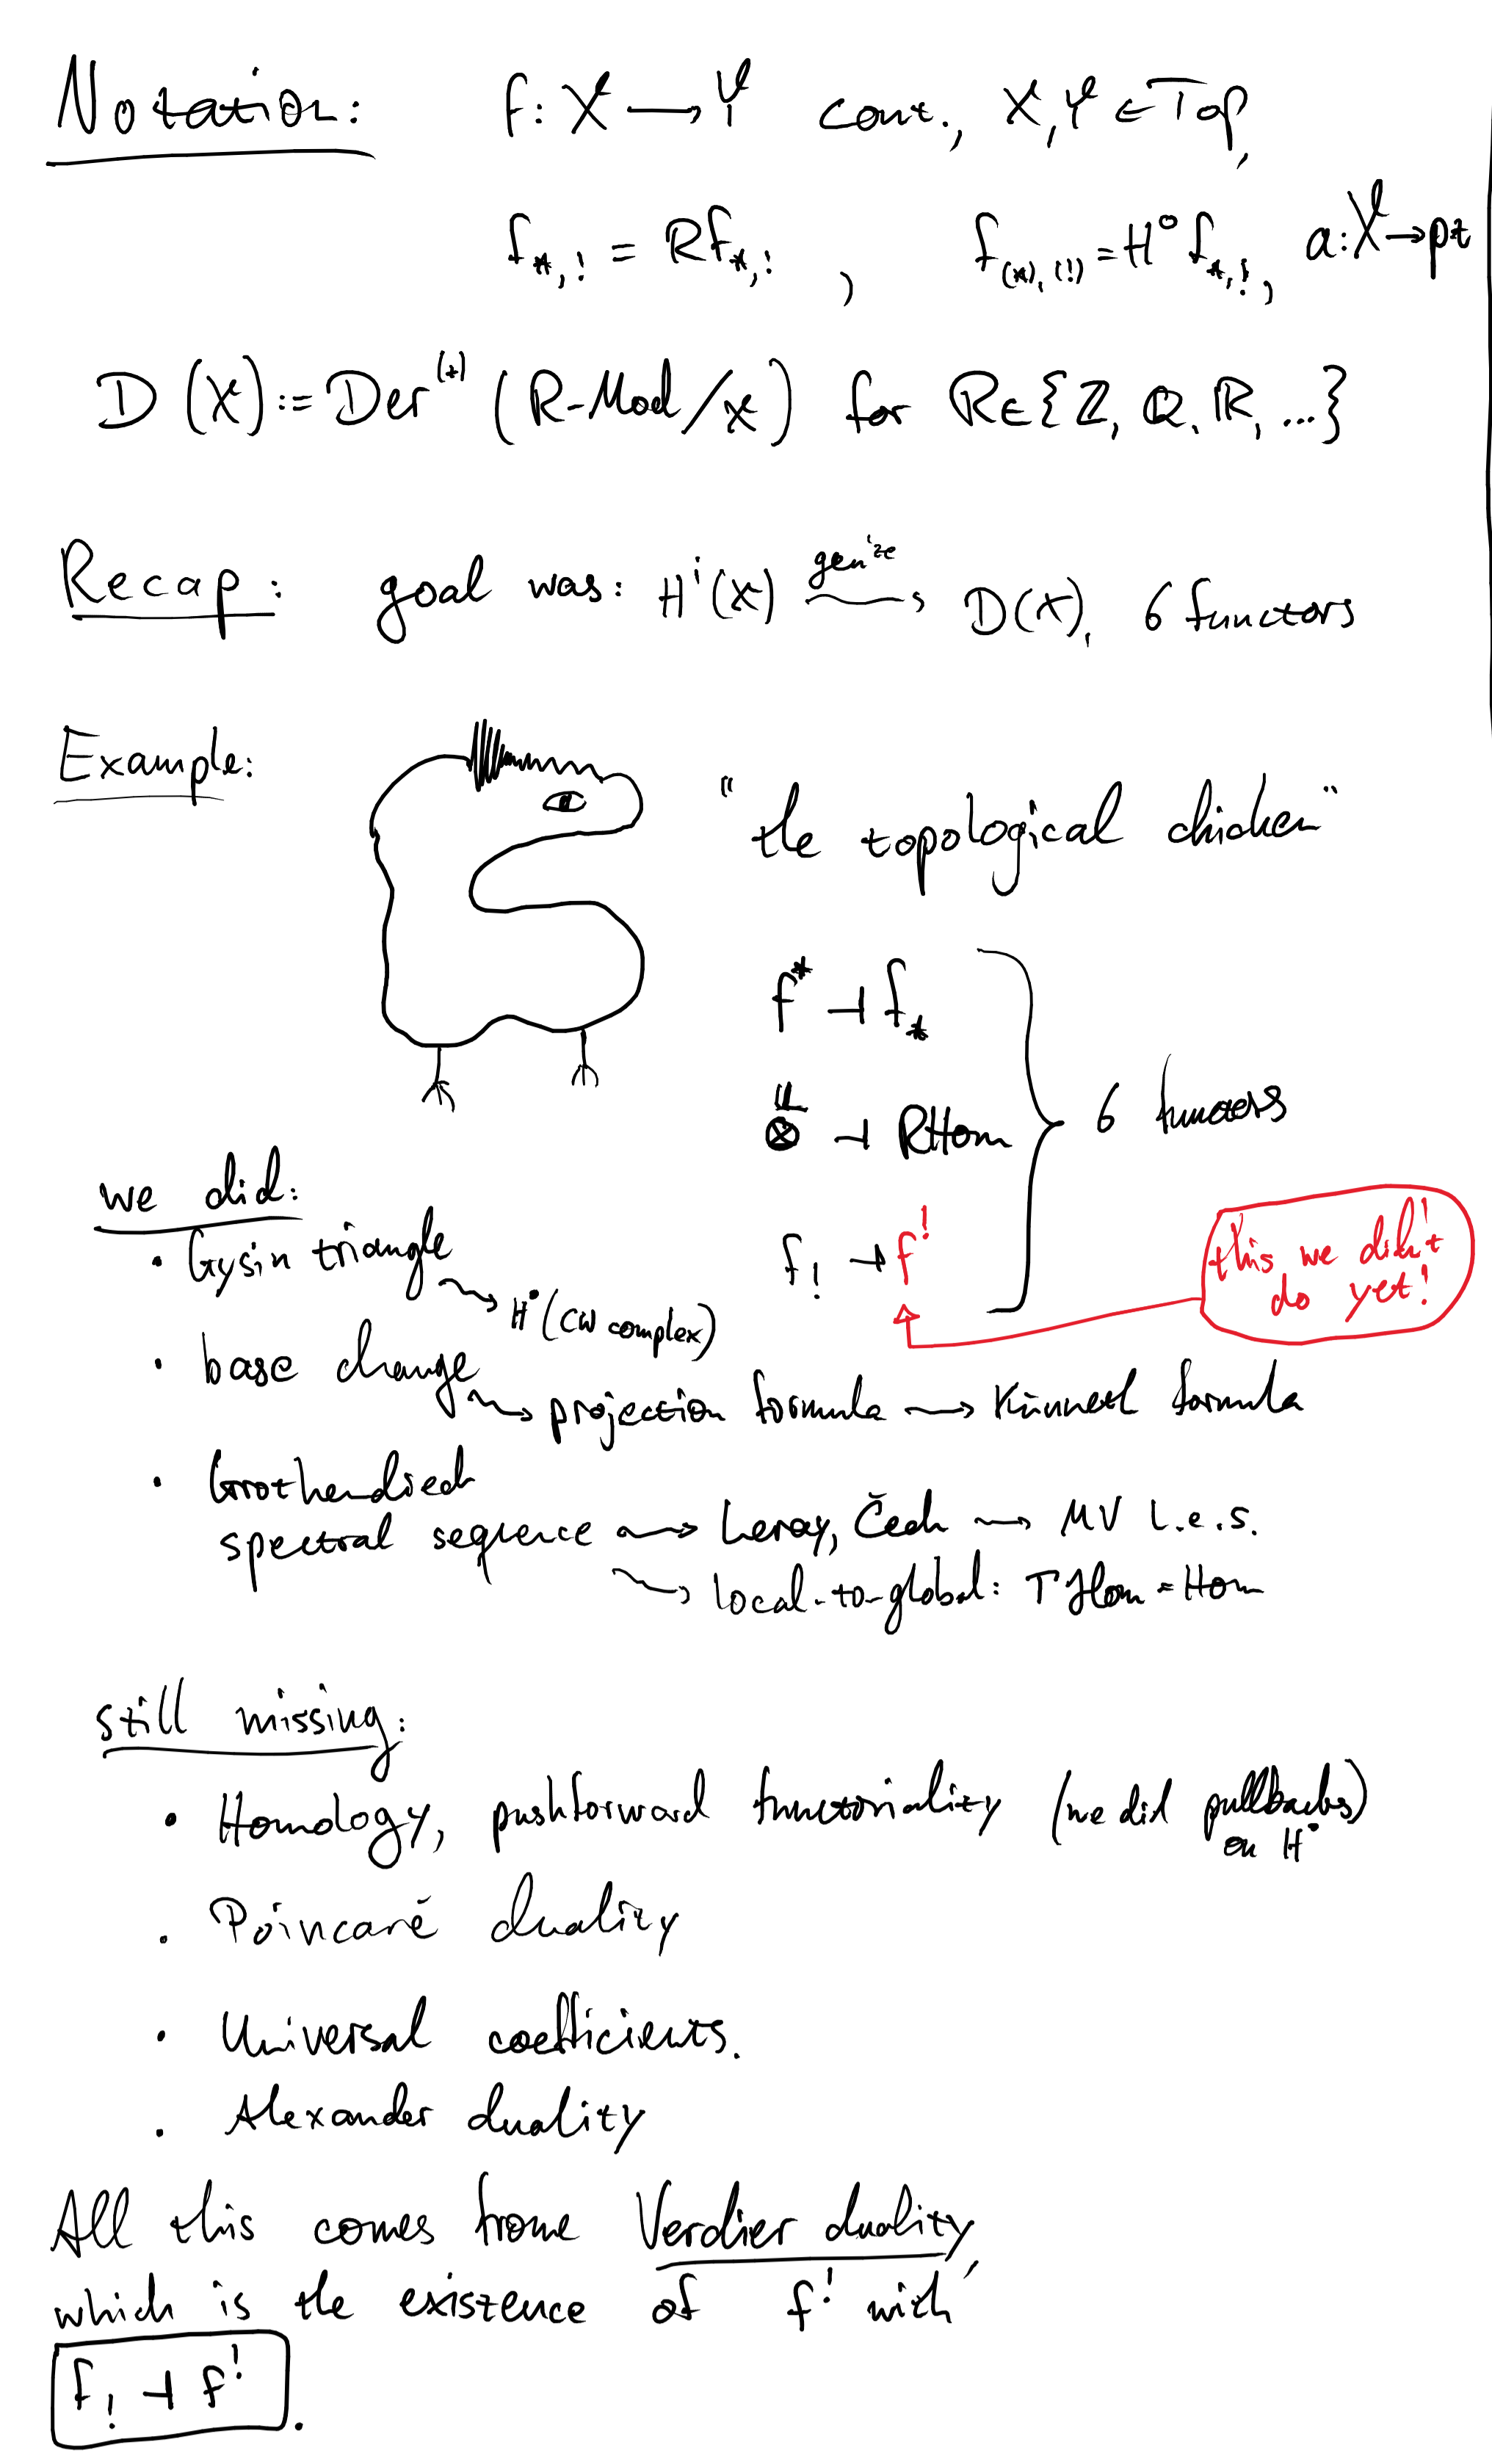 Notation: f: X → Y cont., X, Y ∈ Top,
f_{*,!} = Rf_{*,!} , f_{(*),(!)} = H⁰ f_{*,!}, a: X → pt
D(X) := Der^{(+)} (R-Mod/X) for R ∈ {ℤ, ℚ, ℝ, ...}
Recap: goal was: Hⁱ(X) gen'ze ⇝ D(X), 6 functors
Example:
"the topological chicken"
f^* ⊣ f_*
⊗^L ⊣ RHom
6 functors
f_! ⊣ f^!
this we didn't
do yet!
we did:
• Gysin triangle
⇝ H^•(CW complex)
• base change
⇝ projection formula ⇝ Künneth formula
• Grothendieck
spectral sequence ⇝ Leray, Čech ⇝ MV l.e.s.
⇝ local-to-global: Γ Hom = Hom
still missing:
• Homology, pushforward functoriality (we did pullbacks)
on H^•
• Poincaré duality
• Universal coefficients.
• Alexander duality
All this comes from Verdier duality,
which is the existence of f^! with
f_! ⊣ f^! .